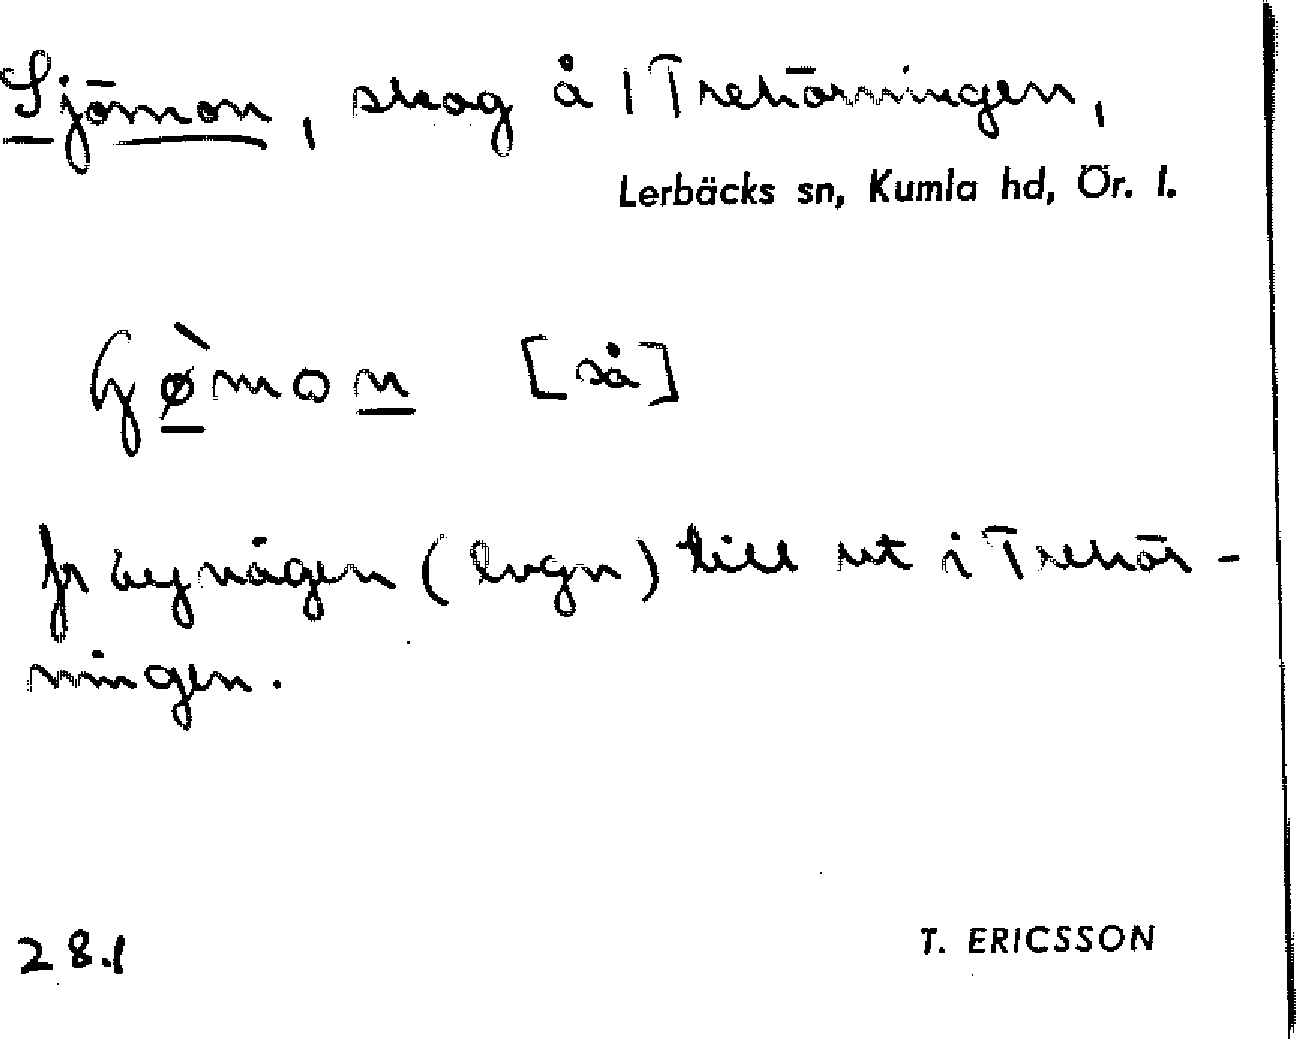 Sjömon, skog å 1 Trehörningen,
Lerbäcks sn, Kumla hd, Ör. l.
[så]
fr byvägen (lvgn) till ut i Trehör-
ningen.
28.1
T. ERICSSON